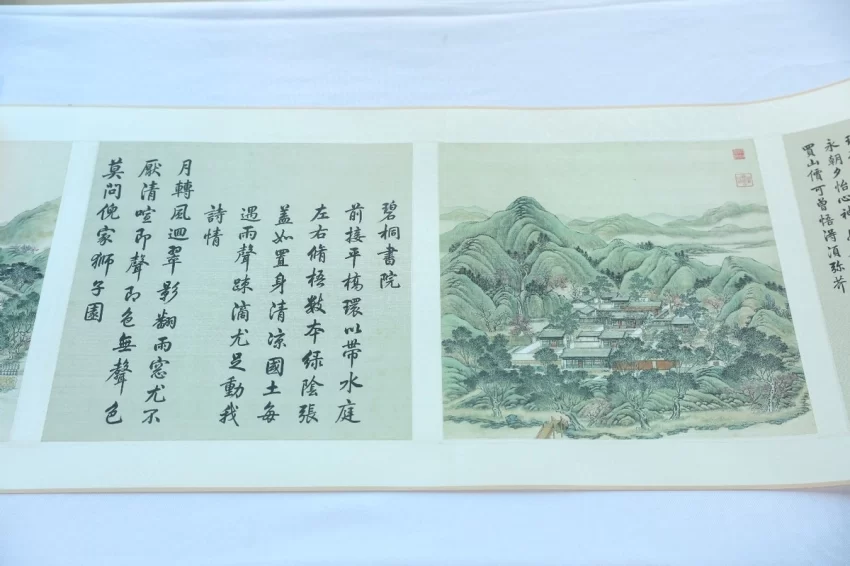 永朝夕怡心神
買山價可曾悟淂湏弥芥
碧桐書院
前接平橋環以帶水庭
左右脩梧數本綠陰張
蓋如置身清涼國土每
遇雨聲踈滴尤足動我
詩情
月轉風迴翠影翻雨窓尤不
厭清喧即聲即色無聲色
莫問倪家獅子園